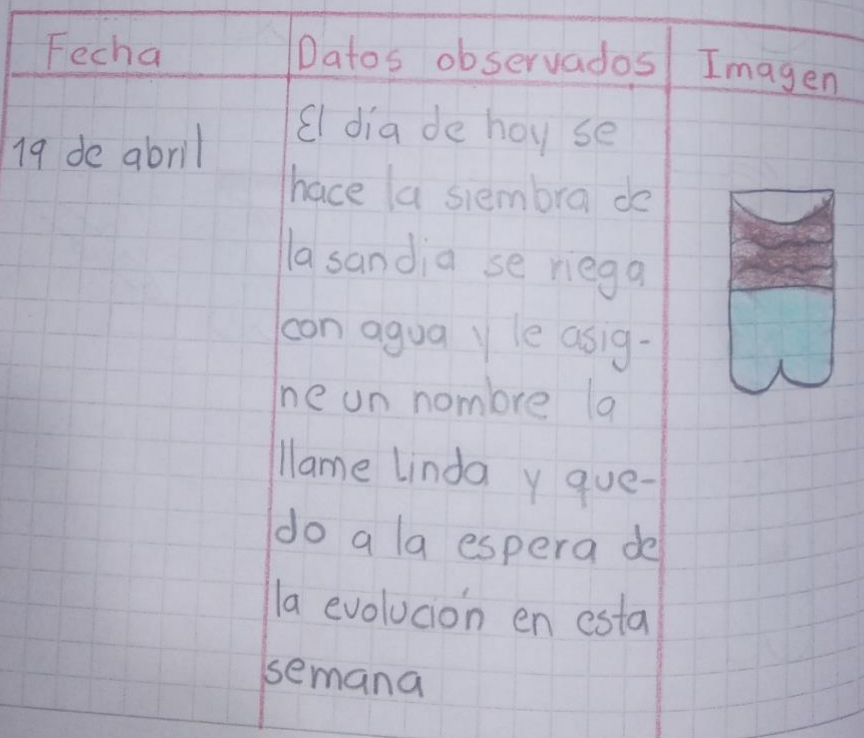 Fecha Datos observados Imagen
19 de abril
El día de hoy se
hace la siembra de
la sandia se riega
con agua y le asig-
ne un nombre la
llame Linda y que-
do a la espera de
la evolución en esta
semana